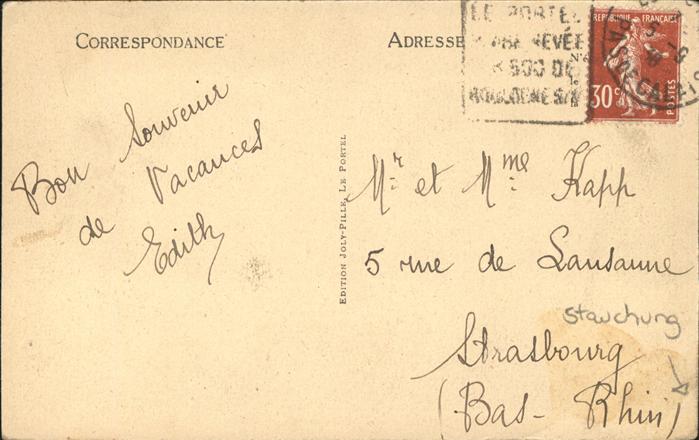 CORRESPONDANCE
ADRESSE
LE PORTEL
RÊVÉE
500
BOULOGNE S/M
RÉPUBLIQUE FRANÇAISE
30c
POSTES
PAS DE CALAIS
Bon Souvenir
de Vacances
Edith
EDITION JOLY-PILLE, LE PORTEL
Mr et Mme Kapp
5 rue de Lausanne
Stauchung
Strasbourg
(Bas-Rhin)